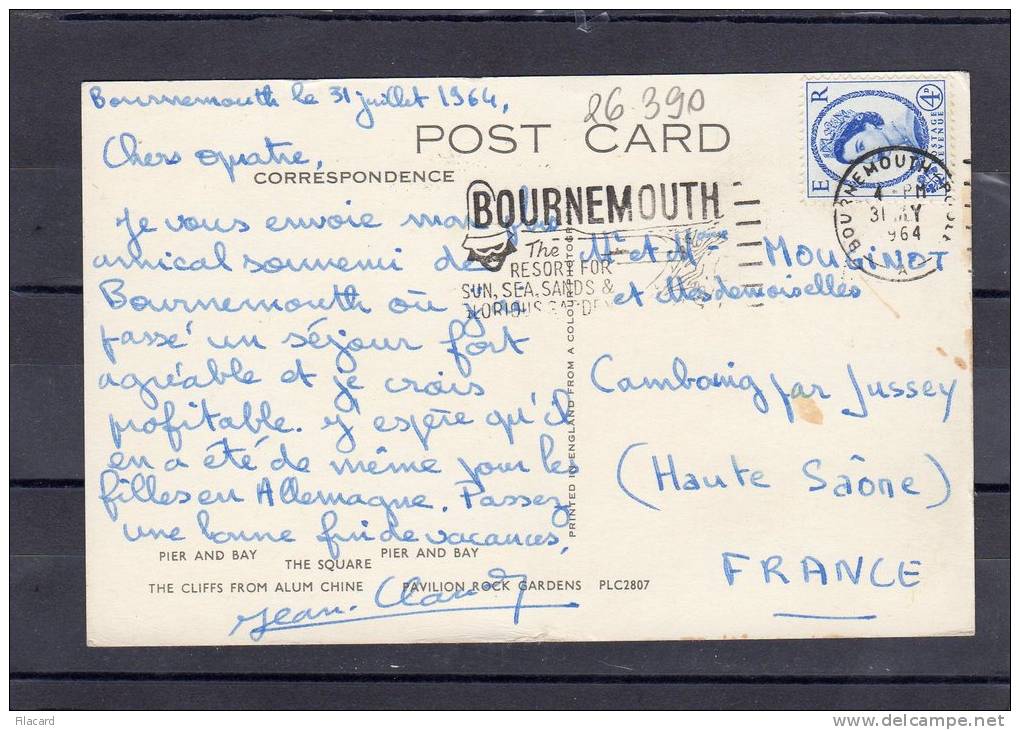 Bournemouth le 31 juillet 1964,
26-390
POST CARD
Chers quatre,
CORRESPONDENCE
Je vous envoie mon plus
amical souvenir de
Bournemouth où j'ai
passé un séjour fort
agréable et je crois
profitable. J'espère qu'il
en a été de même pour les
filles en Allemagne. Passez
une bonne fin de vacances,
Jean-Claude
PIER AND BAY
THE SQUARE
PIER AND BAY
THE CLIFFS FROM ALUM CHINE
PAVILION ROCK GARDENS
PLC2807
PRINTED IN ENGLAND FROM A COLOUR PHOTOGR
BOURNEMOUTH
The
RESORT FOR
SUN, SEA, SANDS &
E R
POSTAGE
REVENUE
4D
BOURNEMOUTH-POOLE
4-PM
31 JLY
1964
A
Mr et Mme MOUGINOT
et Mesdemoiselles
par Jussey
(Haute Saône)
FRANCE
Filacard
www.delcampe.net